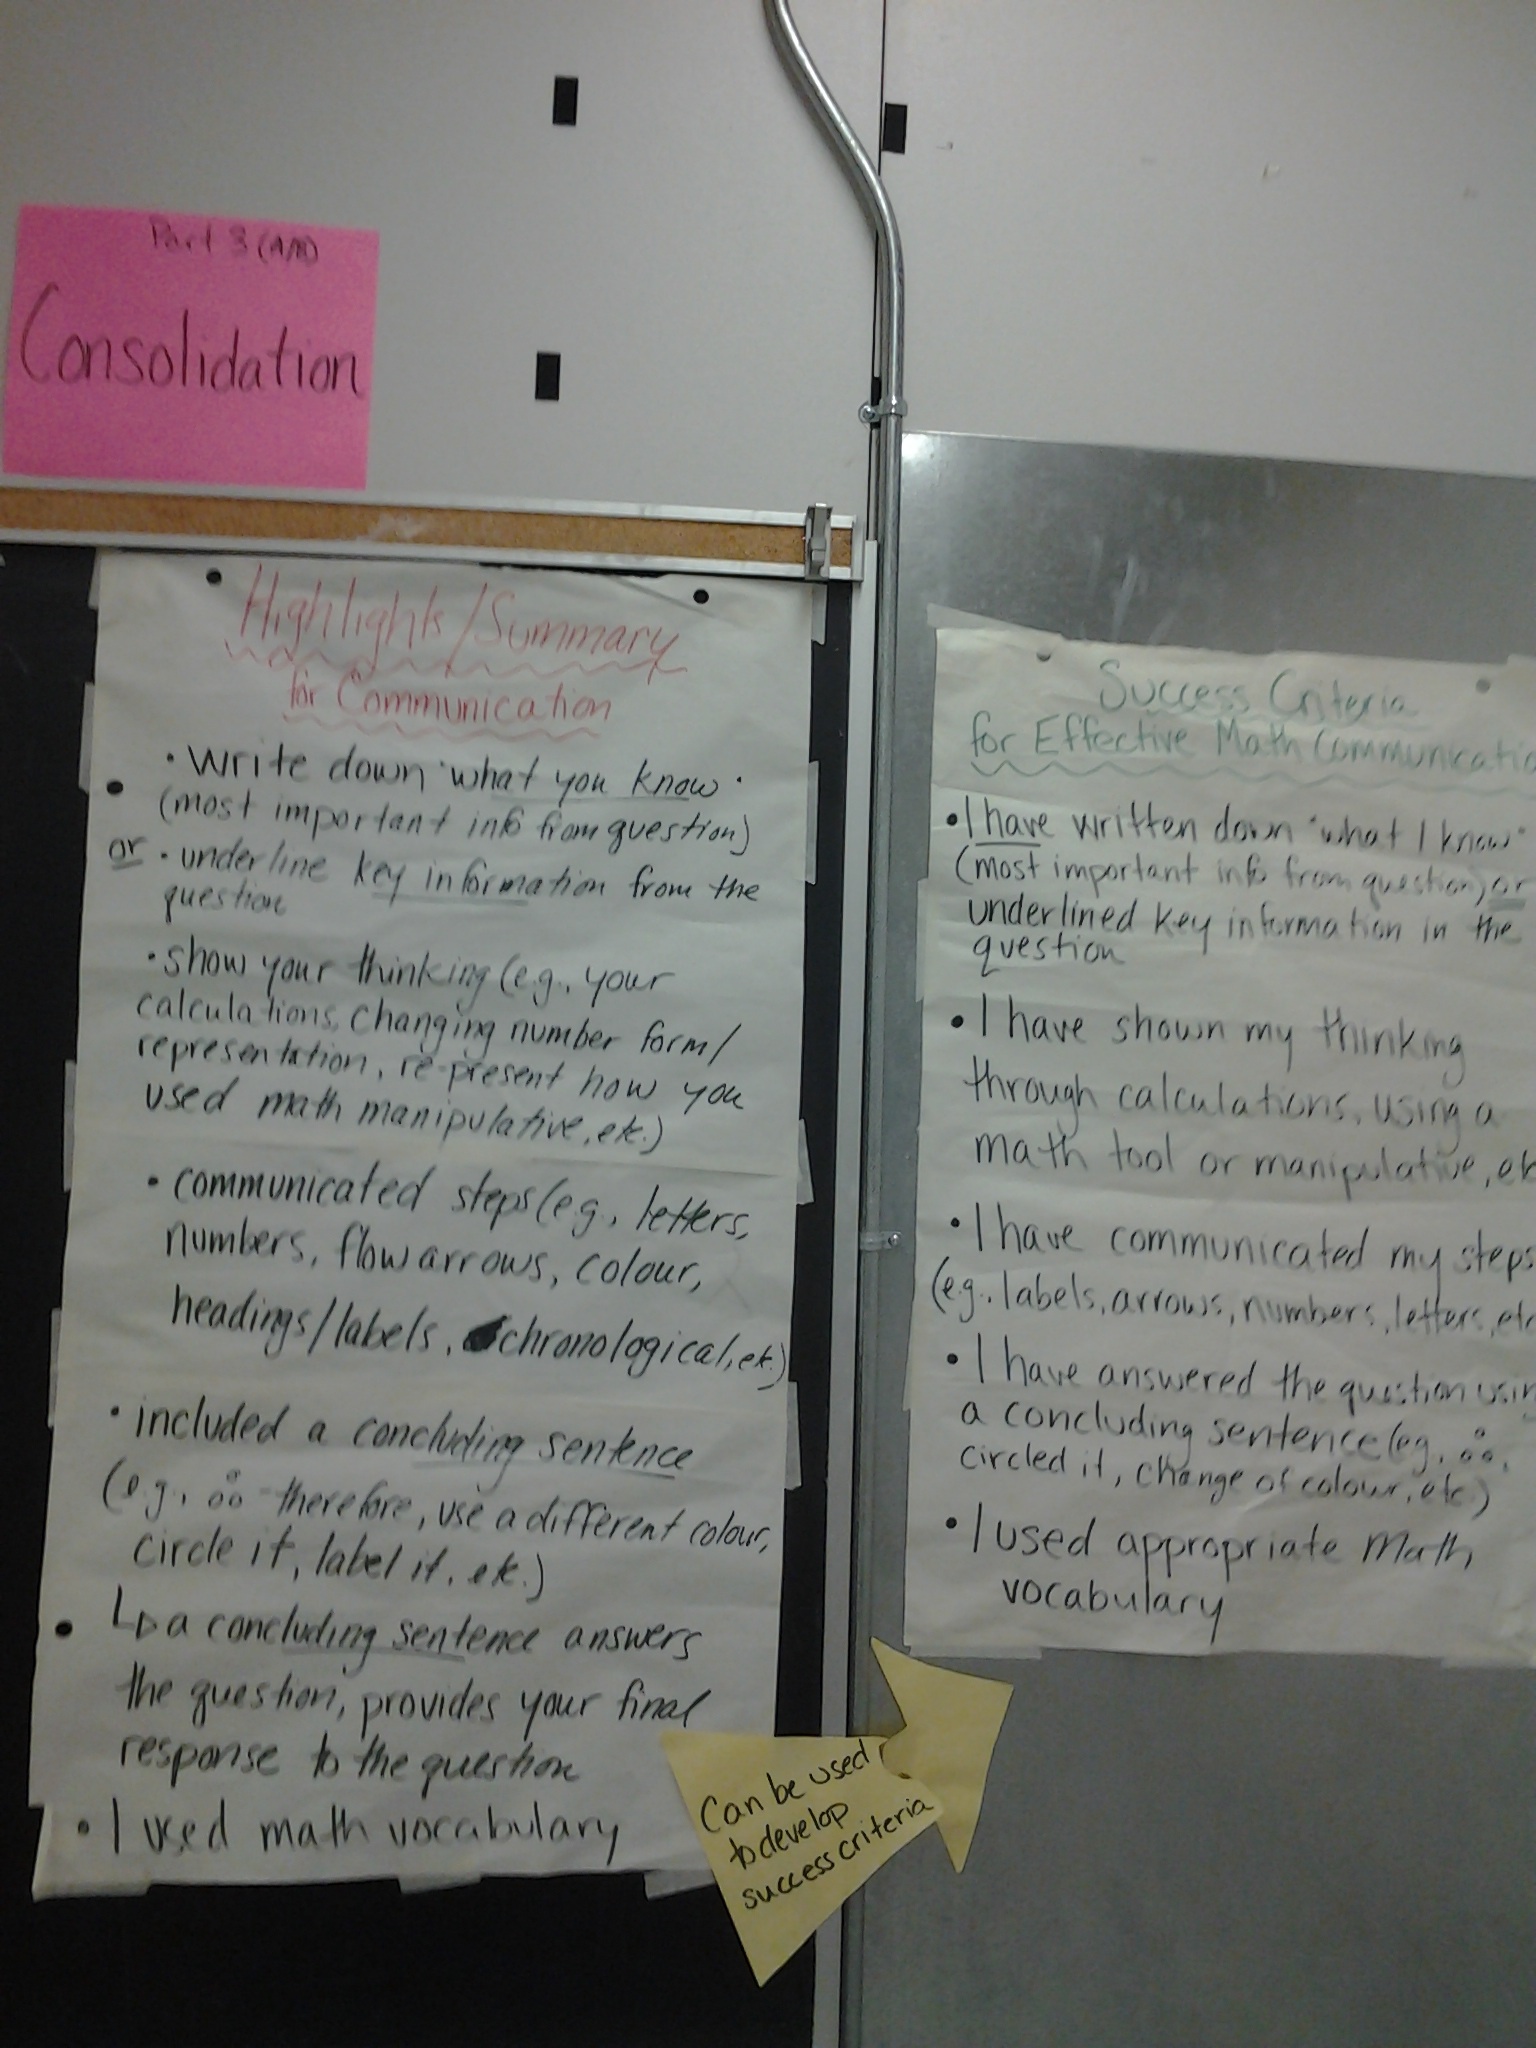 Part 3 (A/B)
Consolidation
Highlights/Summary
for Communication
• write down "what you know"
(most important info from question)
or • underline key information from the
question
• show your thinking (e.g., your
calculations, changing number form/
representation, re-present how you
used math manipulative, etc.)
• communicated steps (e.g., letters,
numbers, flow arrows, colour,
headings/labels, chronological, etc.)
• included a concluding sentence
(e.g., ∴ therefore, use a different colour,
circle it, label it, etc.)
↳ a concluding sentence answers
the question, provides your final
response to the question
• I used math vocabulary
Can be used
to develop
success criteria
Success Criteria
for Effective Math Communicatio
• I have written down "what I know"
(most important info from question) or
underlined key information in the
question
• I have shown my thinking
through calculations, using a
math tool or manipulative, etc
• I have communicated my steps
(e.g., labels, arrows, numbers, letters, etc
• I have answered the question usin
a concluding sentence (e.g., ∴,
circled it, change of colour, etc.)
• I used appropriate math
vocabulary